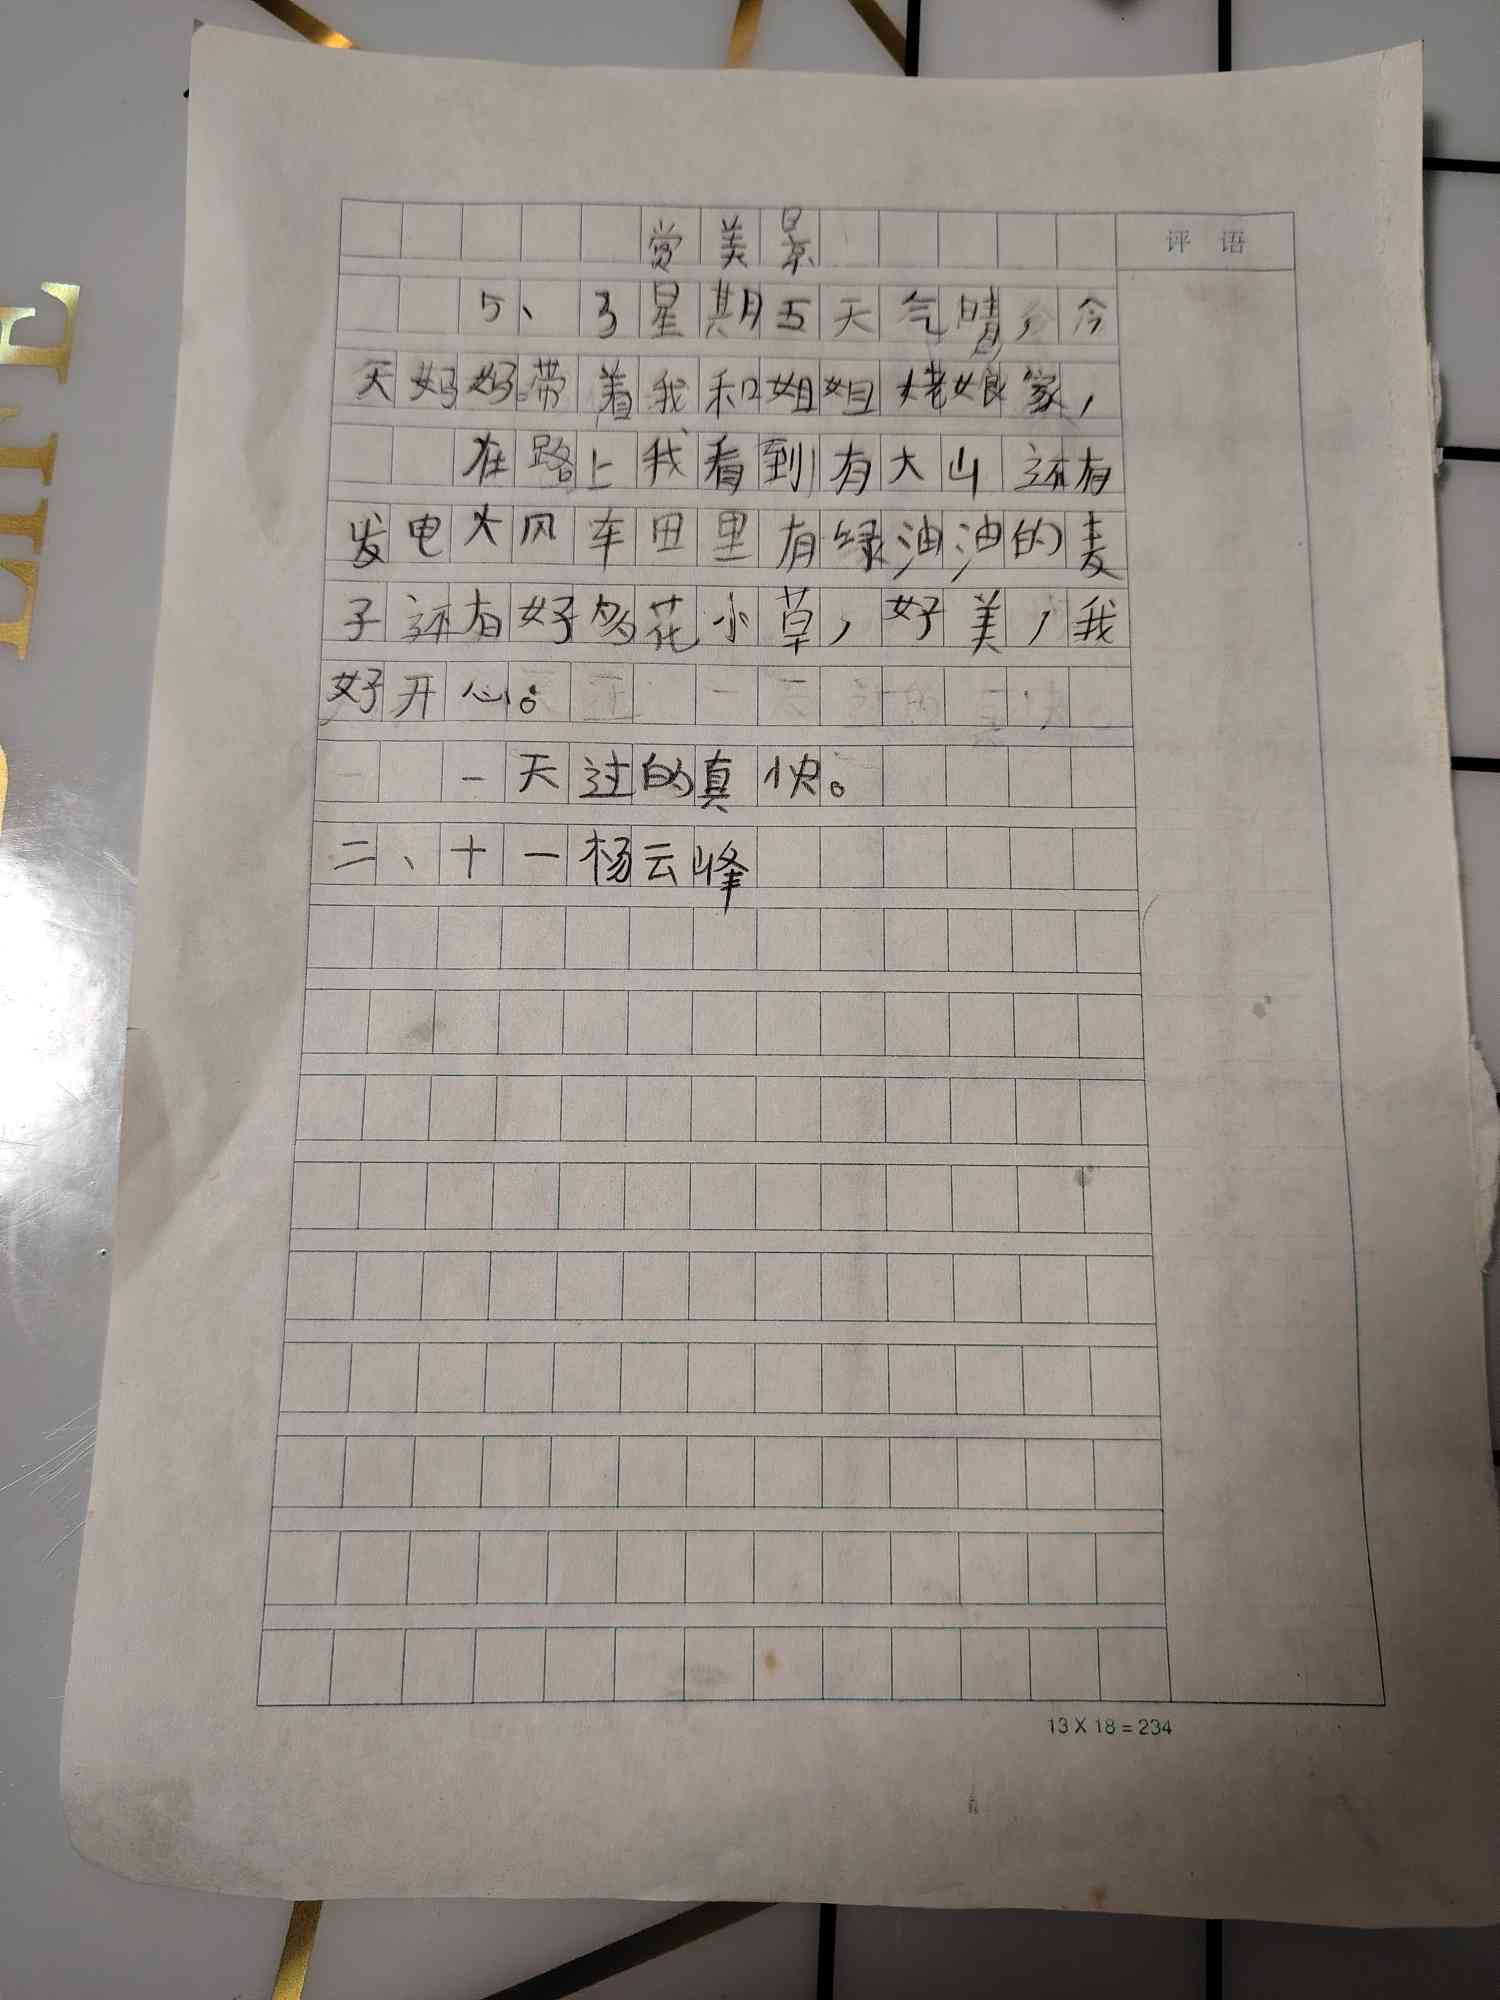 赏美景
评语
5、3星期五天气晴,今
天妈妈带着我和姐姐姥娘家,
在路上我看到有大山还有
发电大风车田里有绿油油的麦
子还有好多花小草,好美,我
好开心。
一天过的真快。
二、十一杨云峰
13 X 18 = 234